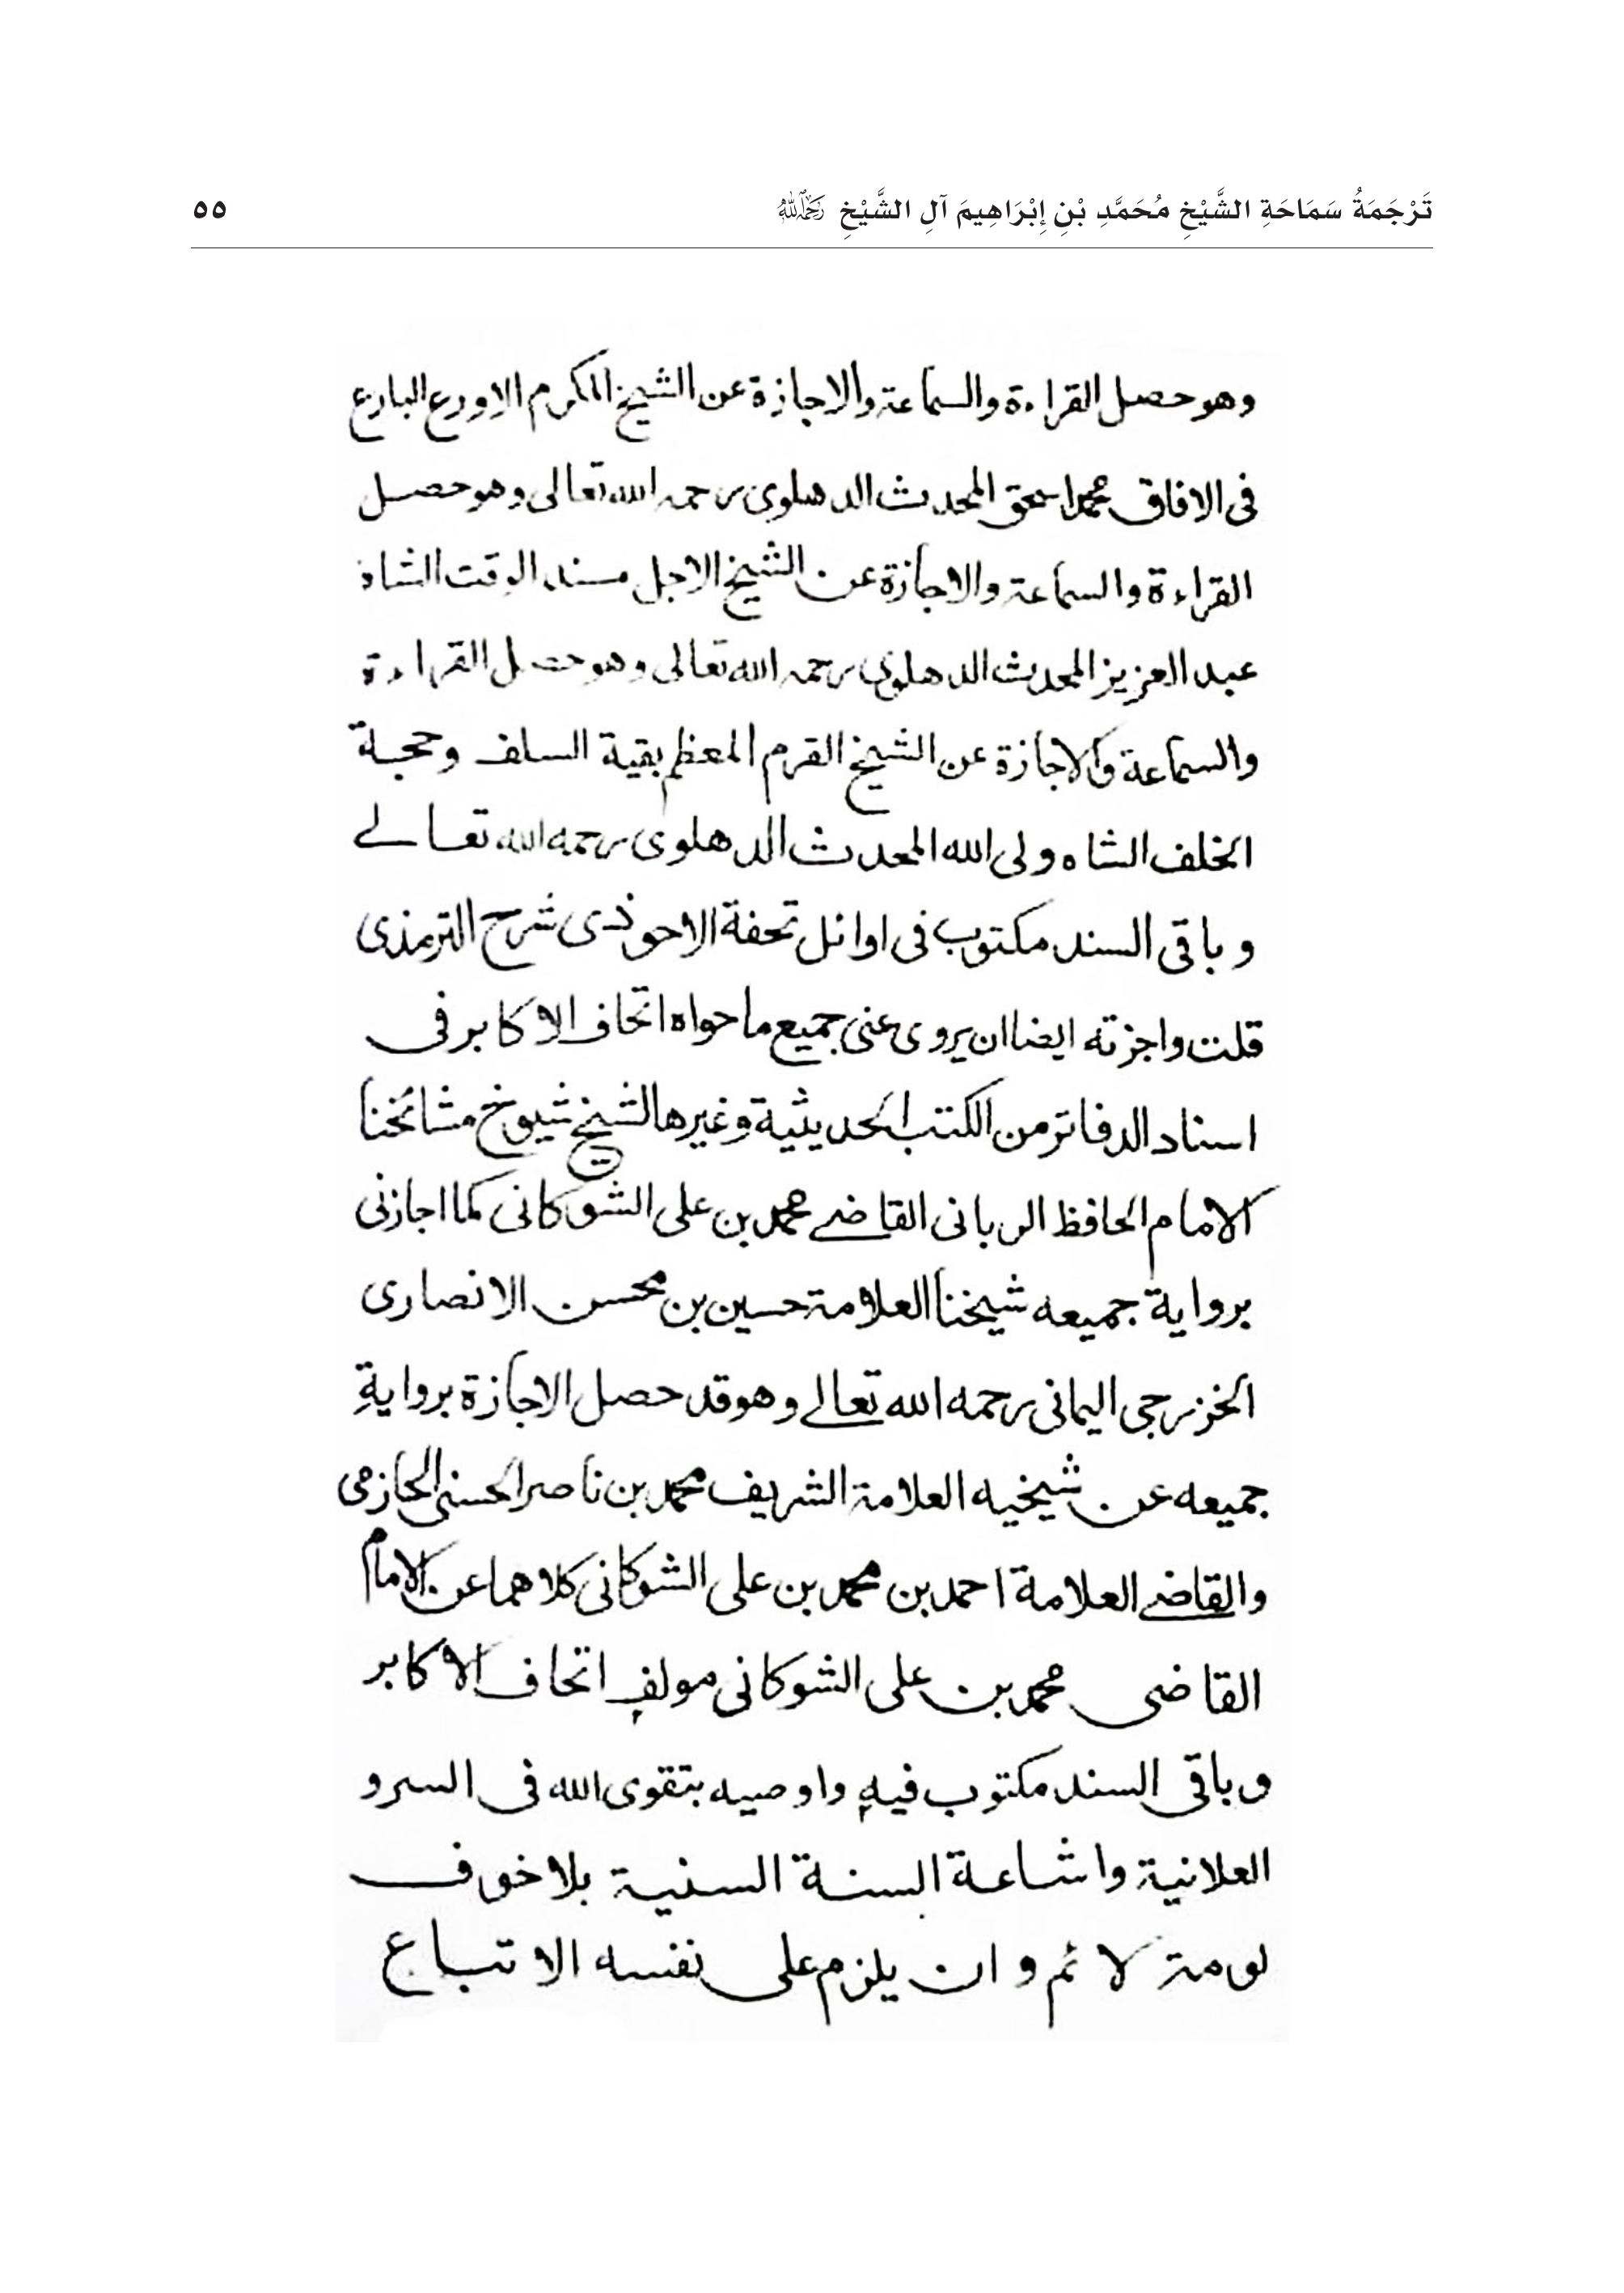 تَرْجَمَةُ سَمَاحَةِ الشَّيْخِ مُحَمَّدِ بْنِ إِبْرَاهِيمَ آلِ الشَّيْخِ رَحِمَهُ اللَّهُ ٥٥
وهو حصل القراءة والسماعة والاجازة عن الشيخ المكرم الاورع البارع
فى الافاق محمد اسحق المحدث الدهلوى رحمه الله تعالى وهو حصل
القراءة والسماعة والاجازة عن الشيخ الاجل مسند الوقت الشاه
عبد العزيز المحدث الدهلوى رحمه الله تعالى وهو حصل القراءة
والسماعة والاجازة عن الشيخ القرم المعظم بقية السلف وحجة
الخلف الشاه ولى الله المحدث الدهلوى رحمه الله تعالے
و باقى السند مكتوب فى اوائل تحفة الاحوذى شرح الترمذى
قلت واجزته ايضا ان يروى عنى جميع ما حواه اتحاف الاكابر فى
اسناد الدفاتر من الكتب الحديثية وغيرها لشيخ شيوخ مشائخنا
الامام الحافظ الربانى القاضے محمد بن على الشوكانى كما اجازنى
برواية جميعه شيخنا العلامة حسين بن محسن الانصارى
الخزرجى اليمانى رحمه الله تعالے وهو قد حصل الاجازة بروايةِ
جميعه عن شيخيه العلامة الشريف محمد بن ناصر الحسنى الحازمى
والقاضے العلامة احمد بن محمد بن على الشوكانى كلاهما عن الامام
القاضى محمد بن على الشوكانى مولفِ اتحاف الاكابر
و باقى السند مكتوب فيهِ واوصيه بتقوى الله فى السر و
العلانية واشاعة السنة السنية بلا خوف
لومة لائم و ان يلزم على نفسه الاتباع